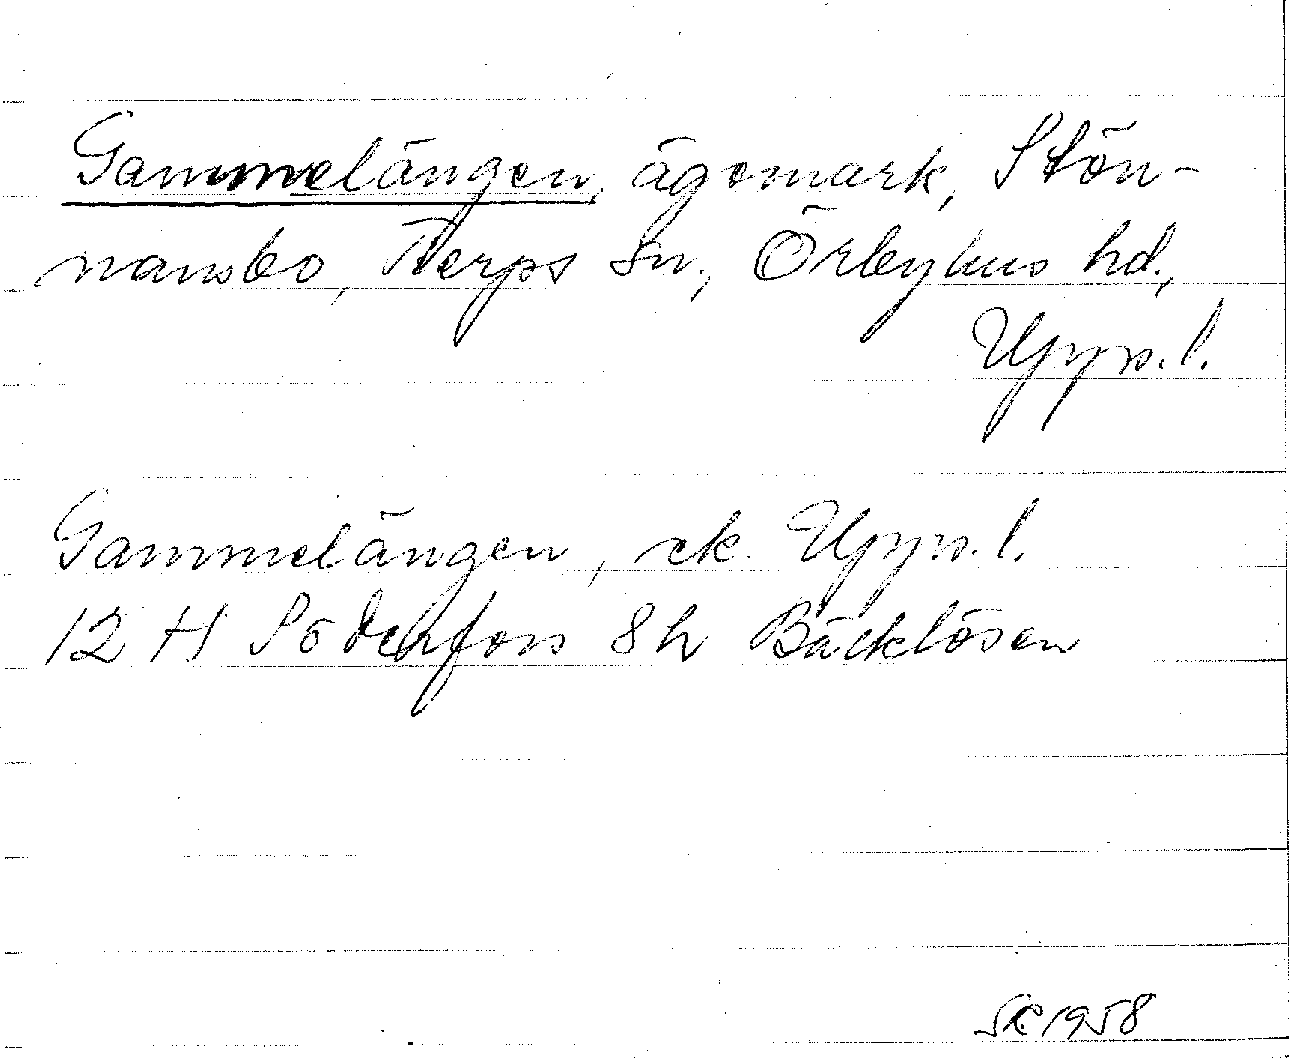 Gammelängen, ägomark, Stön-
nansbo, Tierps sn, Örbyhus hd.,
Upps. l.
Gammelängen, ek. Upps. l.
12 H Söderfors 8h Bäcklösen
SK 1958